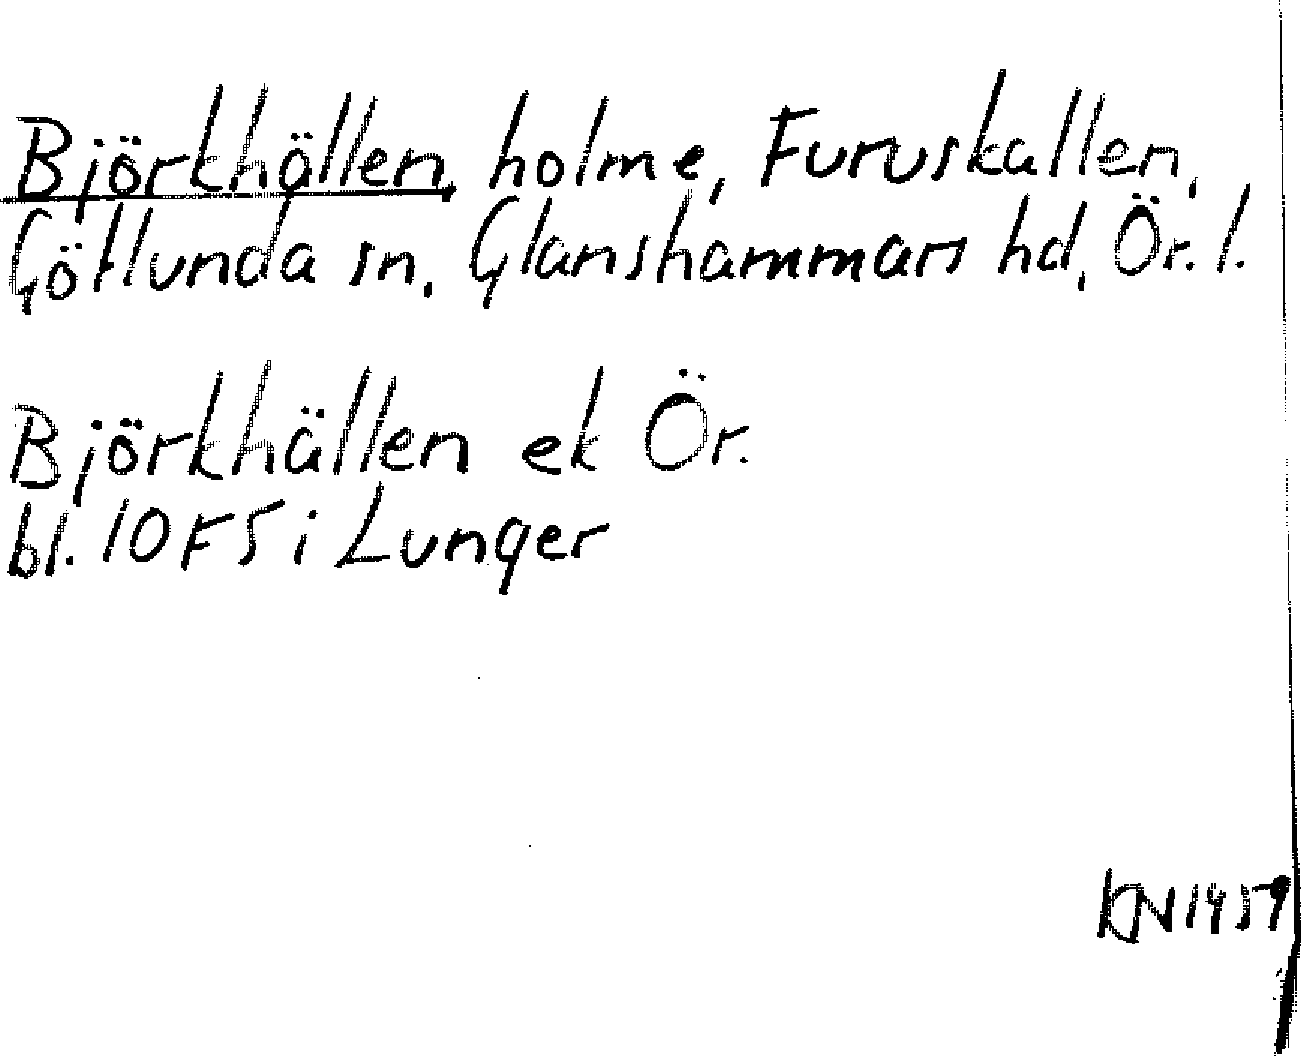 Björkhällen, holme, Furuskallen,
Götlunda sn, Glanshammars hd, Ör. l.
Björkhällen ek Ör.
bl. 10F5i Lunger
KN 1959